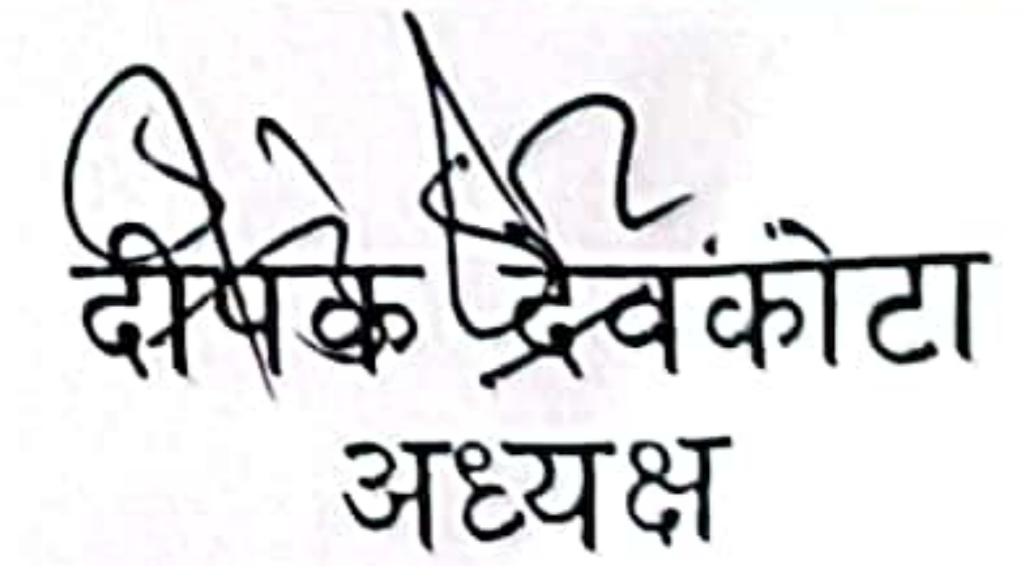 दीपक देवकोटा
अध्यक्ष